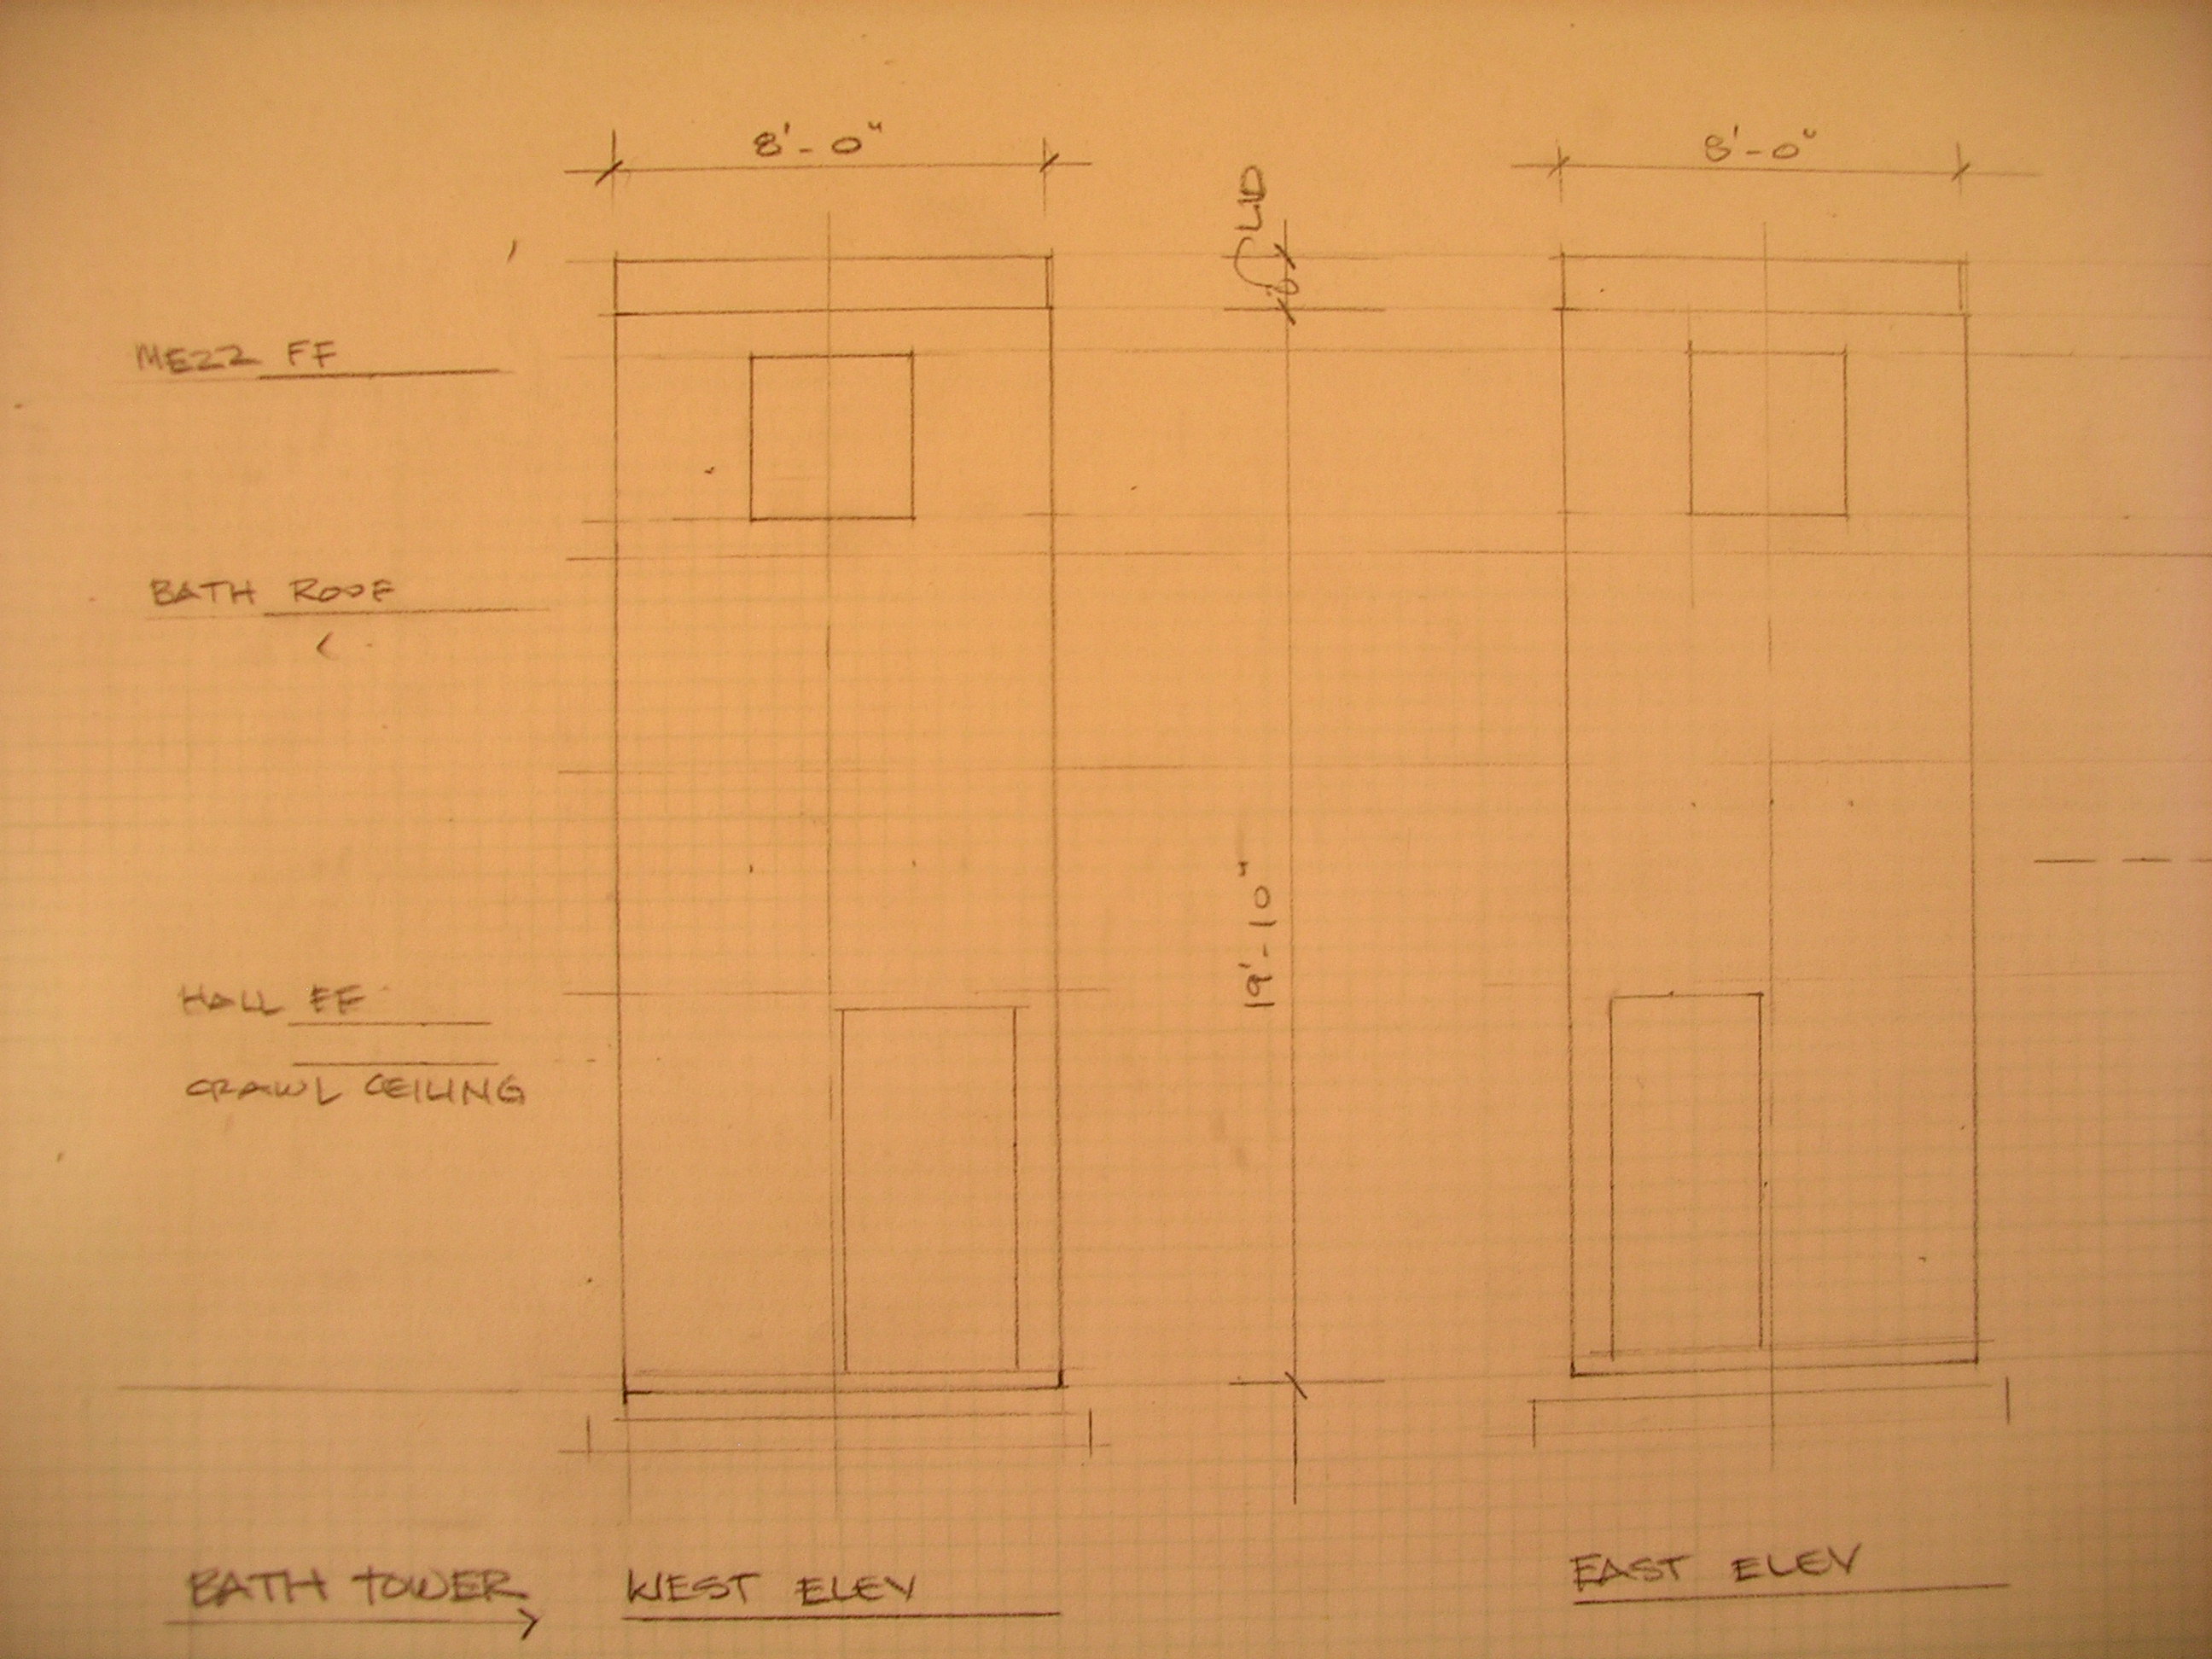 8'-0"
8'-0"
LID
MEZZ FF
BATH ROOF
19'-10"
HALL FF
CRAWL CEILING
BATH TOWER
WEST ELEV
EAST ELEV